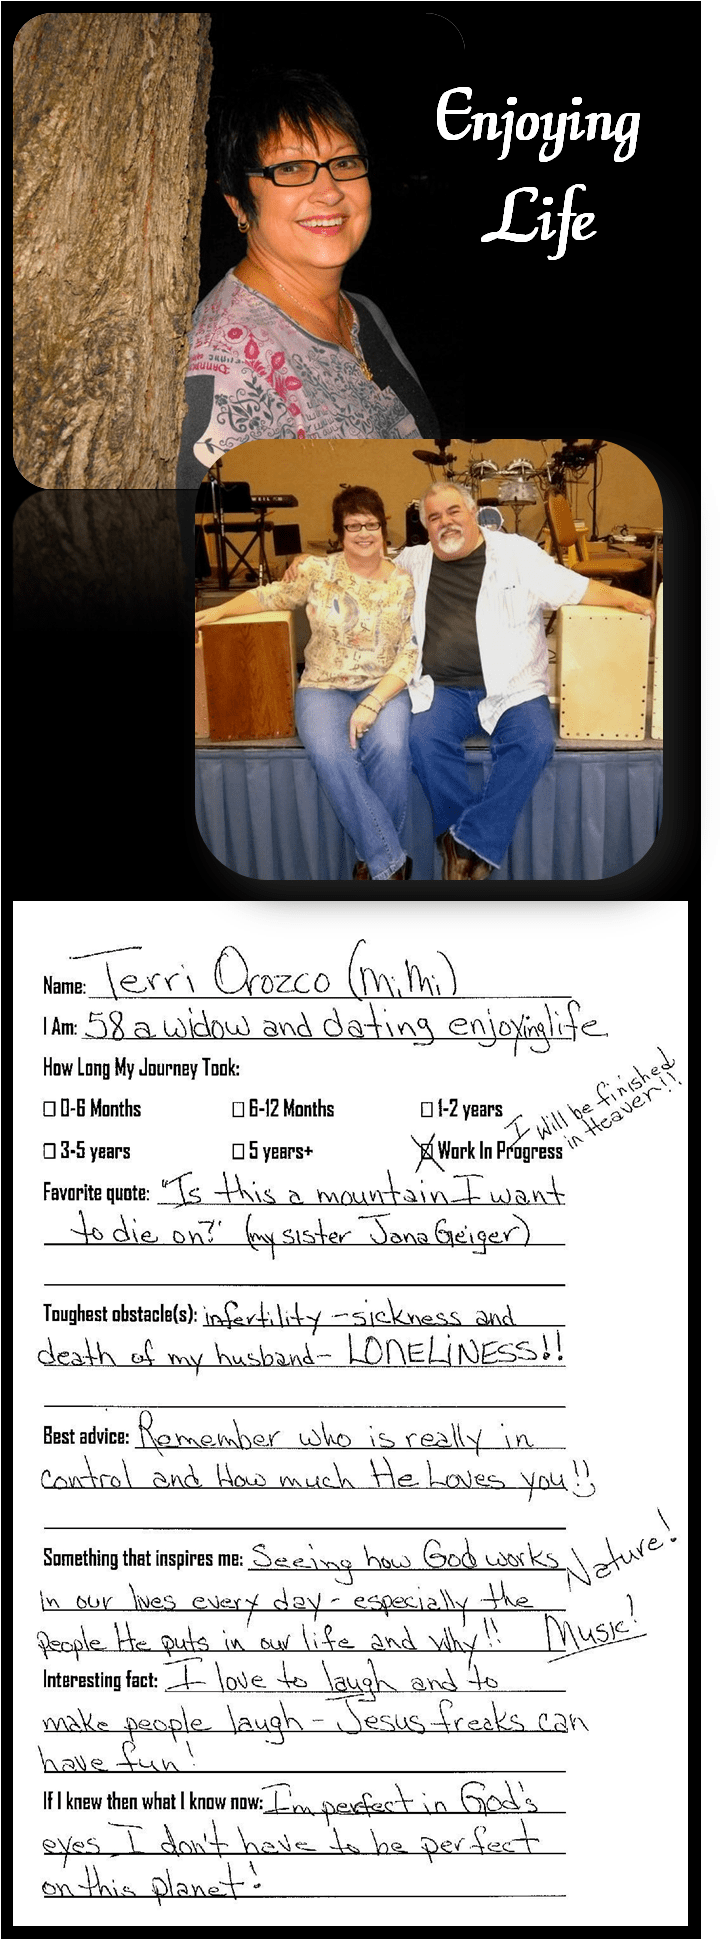 Enjoying
Life
Name: Terri Orozco (MiMi)
I Am: 58 a widow and dating enjoying life
How Long My Journey Took:
0-6 Months 6-12 Months 1-2 years
I will be finished
in Heaven!!
3-5 years 5 years+ Work In Progress
Favorite quote: "Is this a mountain I want
to die on?" (my sister Jana Geiger)
Toughest obstacle(s): infertility - sickness and
death of my husband - LONELiNESS!!
Best advice: Remember who is really in
control and How much He Loves you!!
Something that inspires me: Seeing how God works
Nature!
in our lives every day - especially the
people He puts in our life and why!! Music!
Interesting fact: I love to laugh and to
make people laugh - Jesus freaks can
have fun!
If I knew then what I know now: I'm perfect in God's
eyes I don't have to be perfect
on this planet!